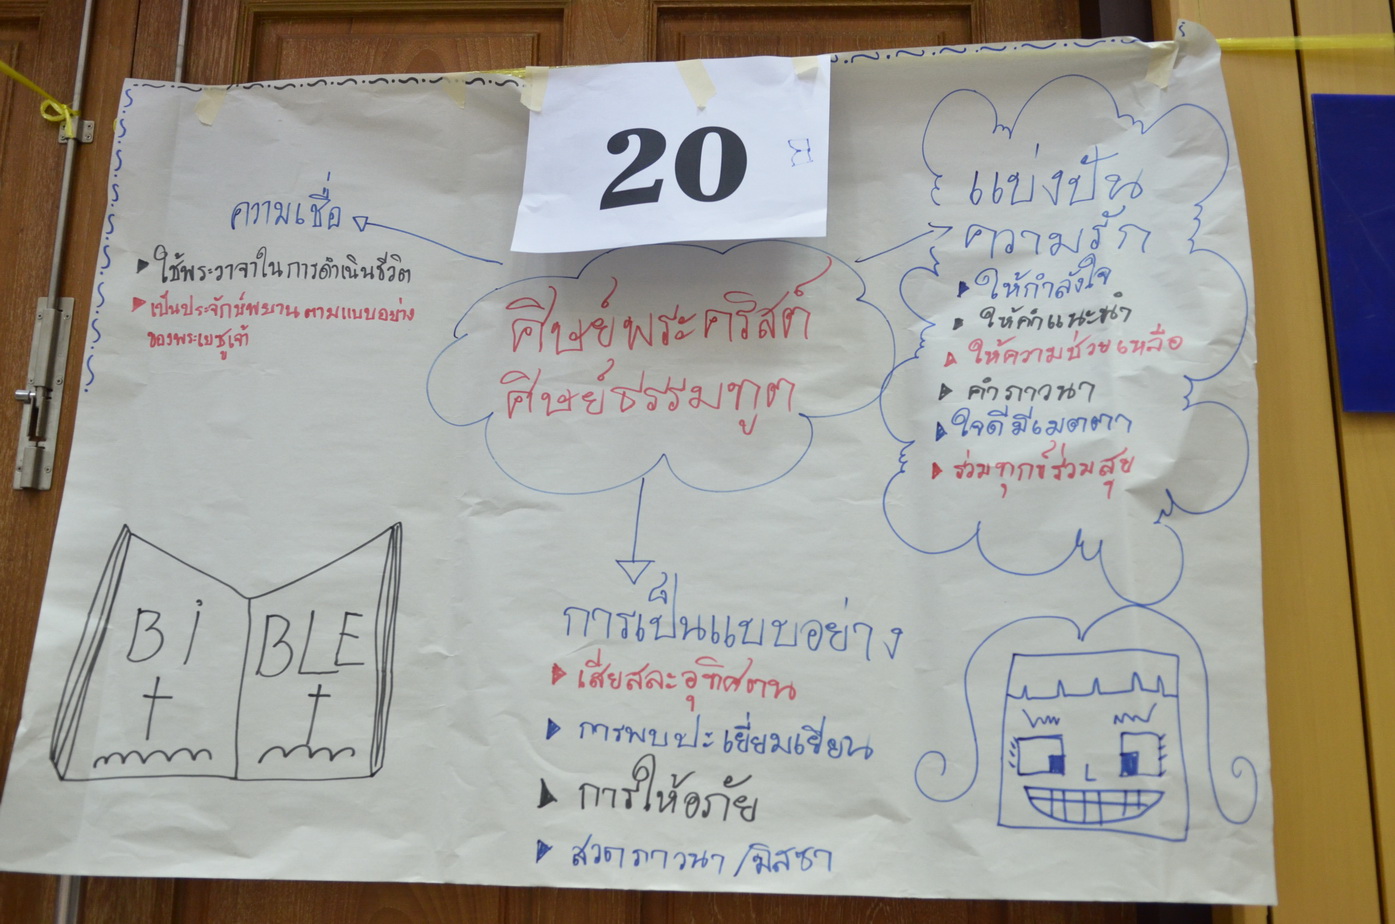 20
ความเชื่อ
ใช้พระวาจาในการดำเนินชีวิต
เป็นประจักษ์พยานตามแบบอย่าง
ของพระเยซูเจ้า
ศิษย์พระคริสต์
ศิษย์ธรรมทูต
แบ่งปัน
ความรัก
ให้กำลังใจ
ให้คำแนะนำ
ให้ความช่วยเหลือ
คำภาวนา
ใจดีมีเมตตา
ร่วมทุกข์ร่วมสุข
การเป็นแบบอย่าง
เสียสละอุทิศตน
การพบปะเยี่ยมเยียน
การให้อภัย
สวดภาวนา/มิสซา
BiBLE